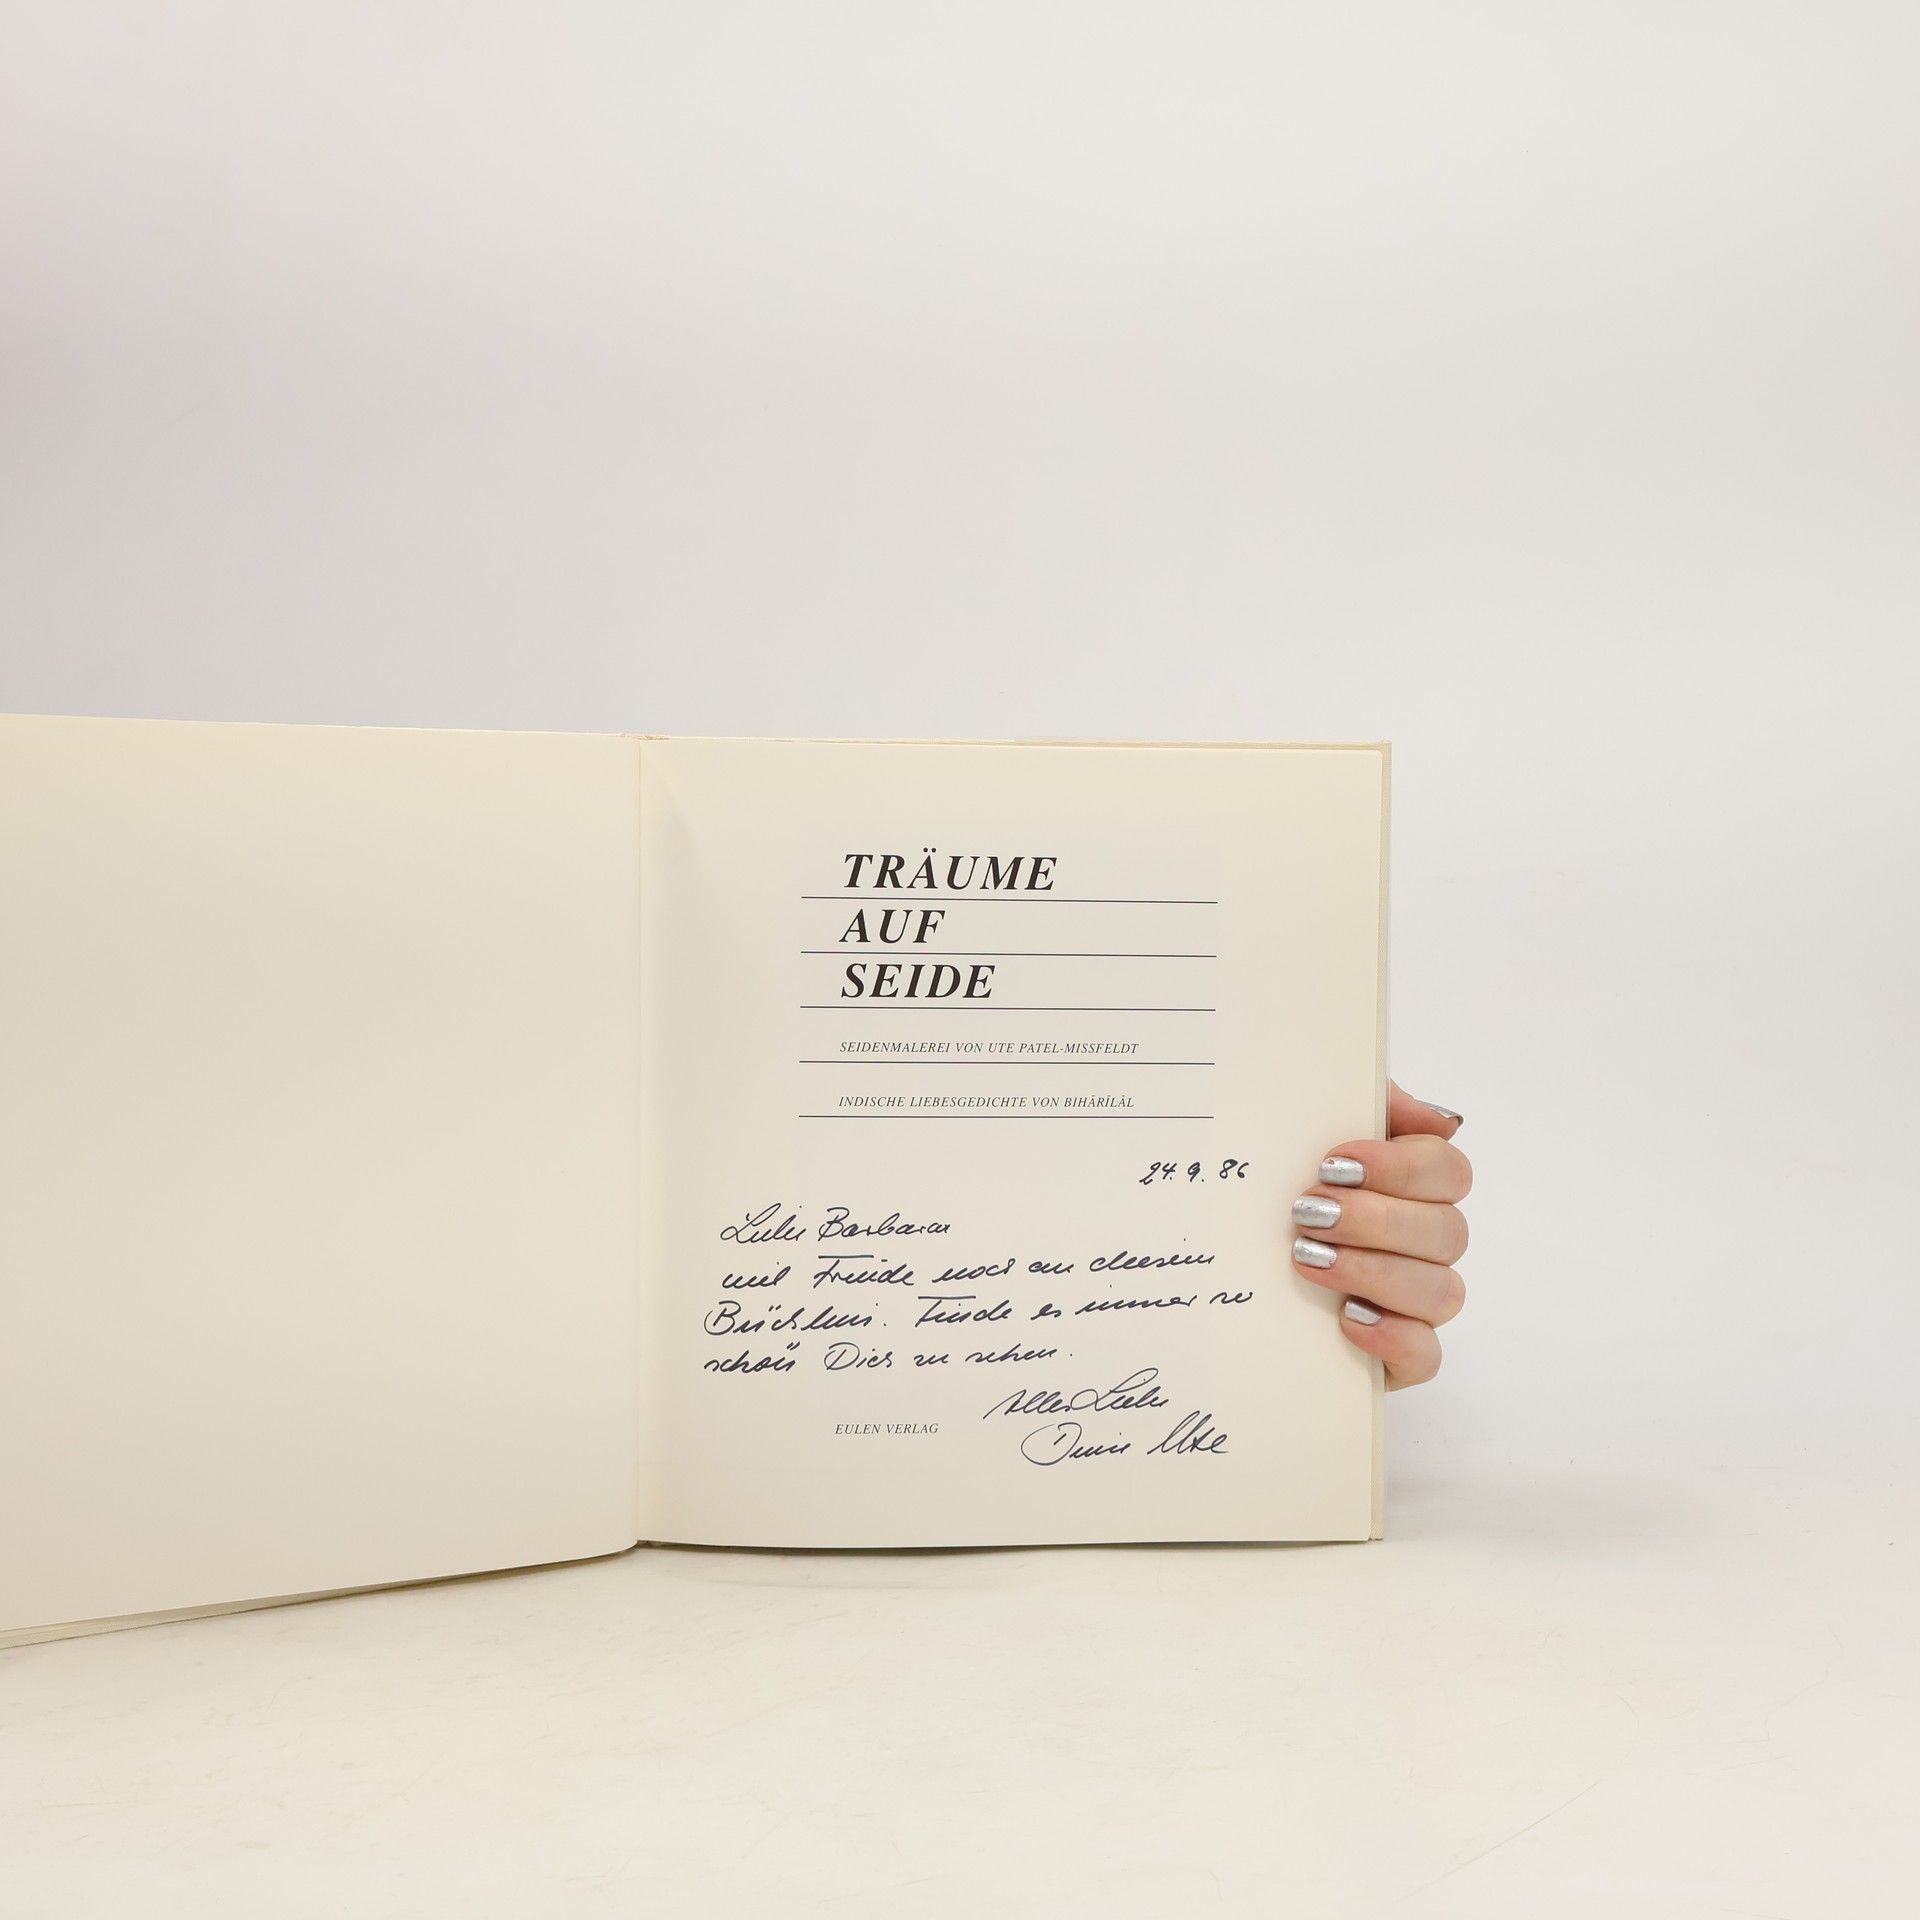 TRÄUME
AUF
SEIDE
SEIDENMALEREI VON UTE PATEL-MISSFELDT
INDISCHE LIEBESGEDICHTE VON BIHĀRĪLĀL
24. 9. 86
Liebe Barbara
viel Freude noch an diesem
Büchlein. Finde es immer so
schön Dich zu sehen.
Alles Liebe
EULEN VERLAG
Deine Ute